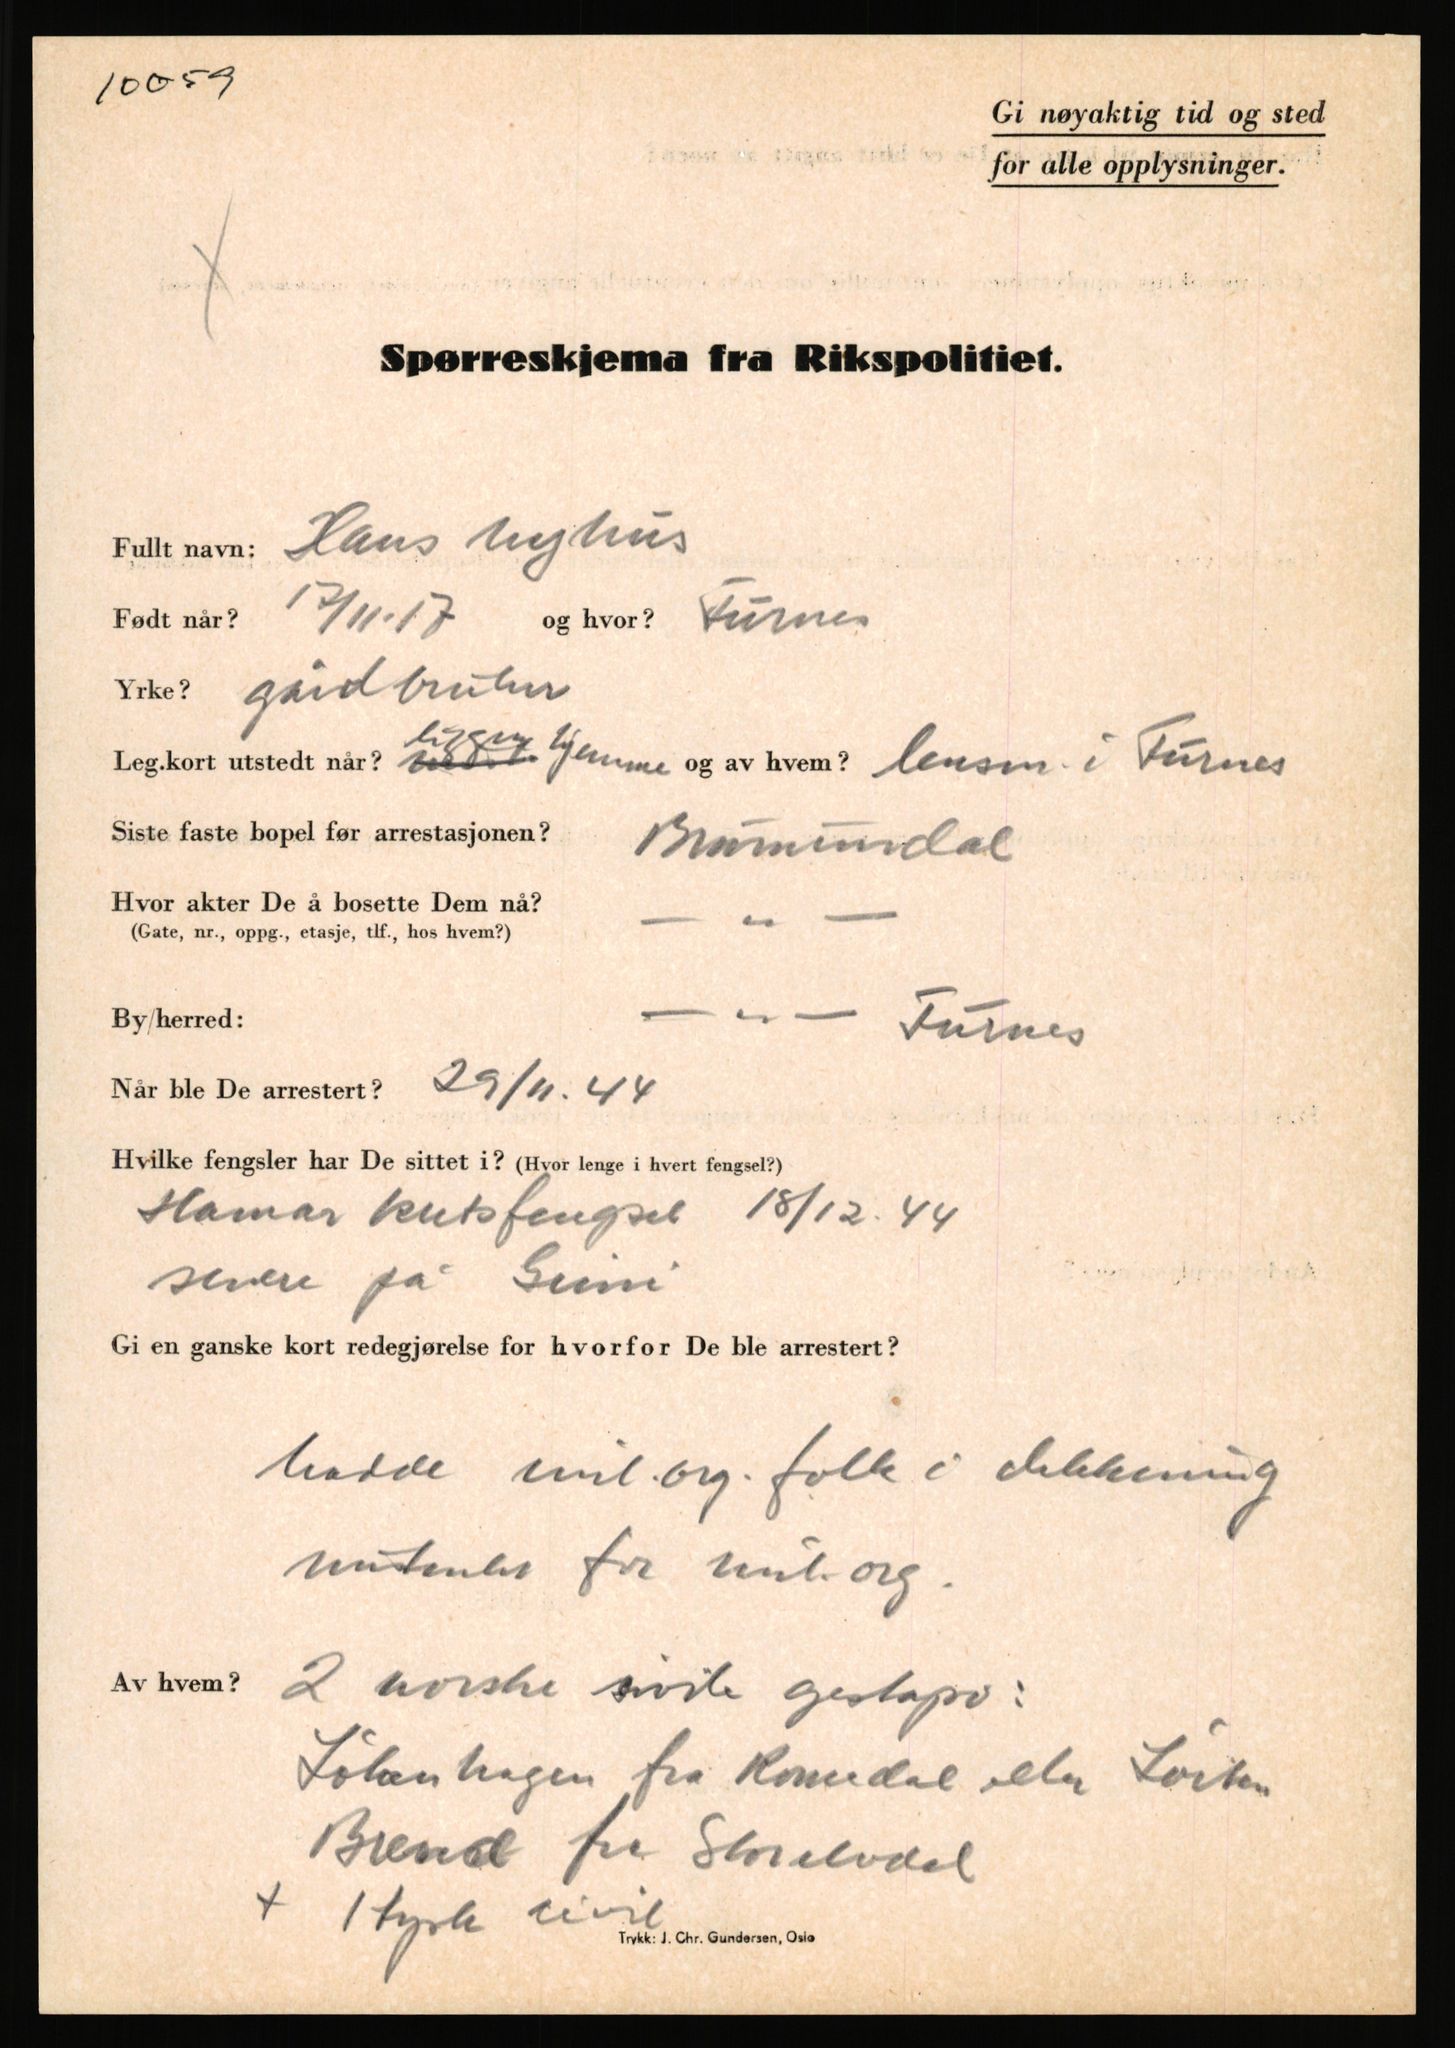 10059
Gi nøyaktig tid og sted
for alle opplysninger.
Spørreskjema fra Rikspolitiet.
Fullt navn: Hans Nyhus
Født når? 17/11.17 og hvor? Furnes
Yrke? gårdbruker
Leg.kort utstedt når? ligger hjemme og av hvem? lensm. i Furnes
Siste faste bopel før arrestasjonen? Brumunddal
Hvor akter De å bosette Dem nå? — " —
(Gate, nr., oppg., etasje, tlf., hos hvem?)
By/herred: — " — Furnes
Når ble De arrestert? 29/11.44
Hvilke fengsler har De sittet i? (Hvor lenge i hvert fengsel?)
Hamar kretsfengsel 18/12.44
senere på Grini
Gi en ganske kort redegjørelse for hvorfor De ble arrestert?
hadde mil.org. folk i dekkning
for mil.org.
Av hvem? 2 norske sivile gestapo:
fra Romedal eller Löten
Brend fra Storelvdal
+ 1 tysk civil
Trykk: J. Chr. Gundersen, Oslo